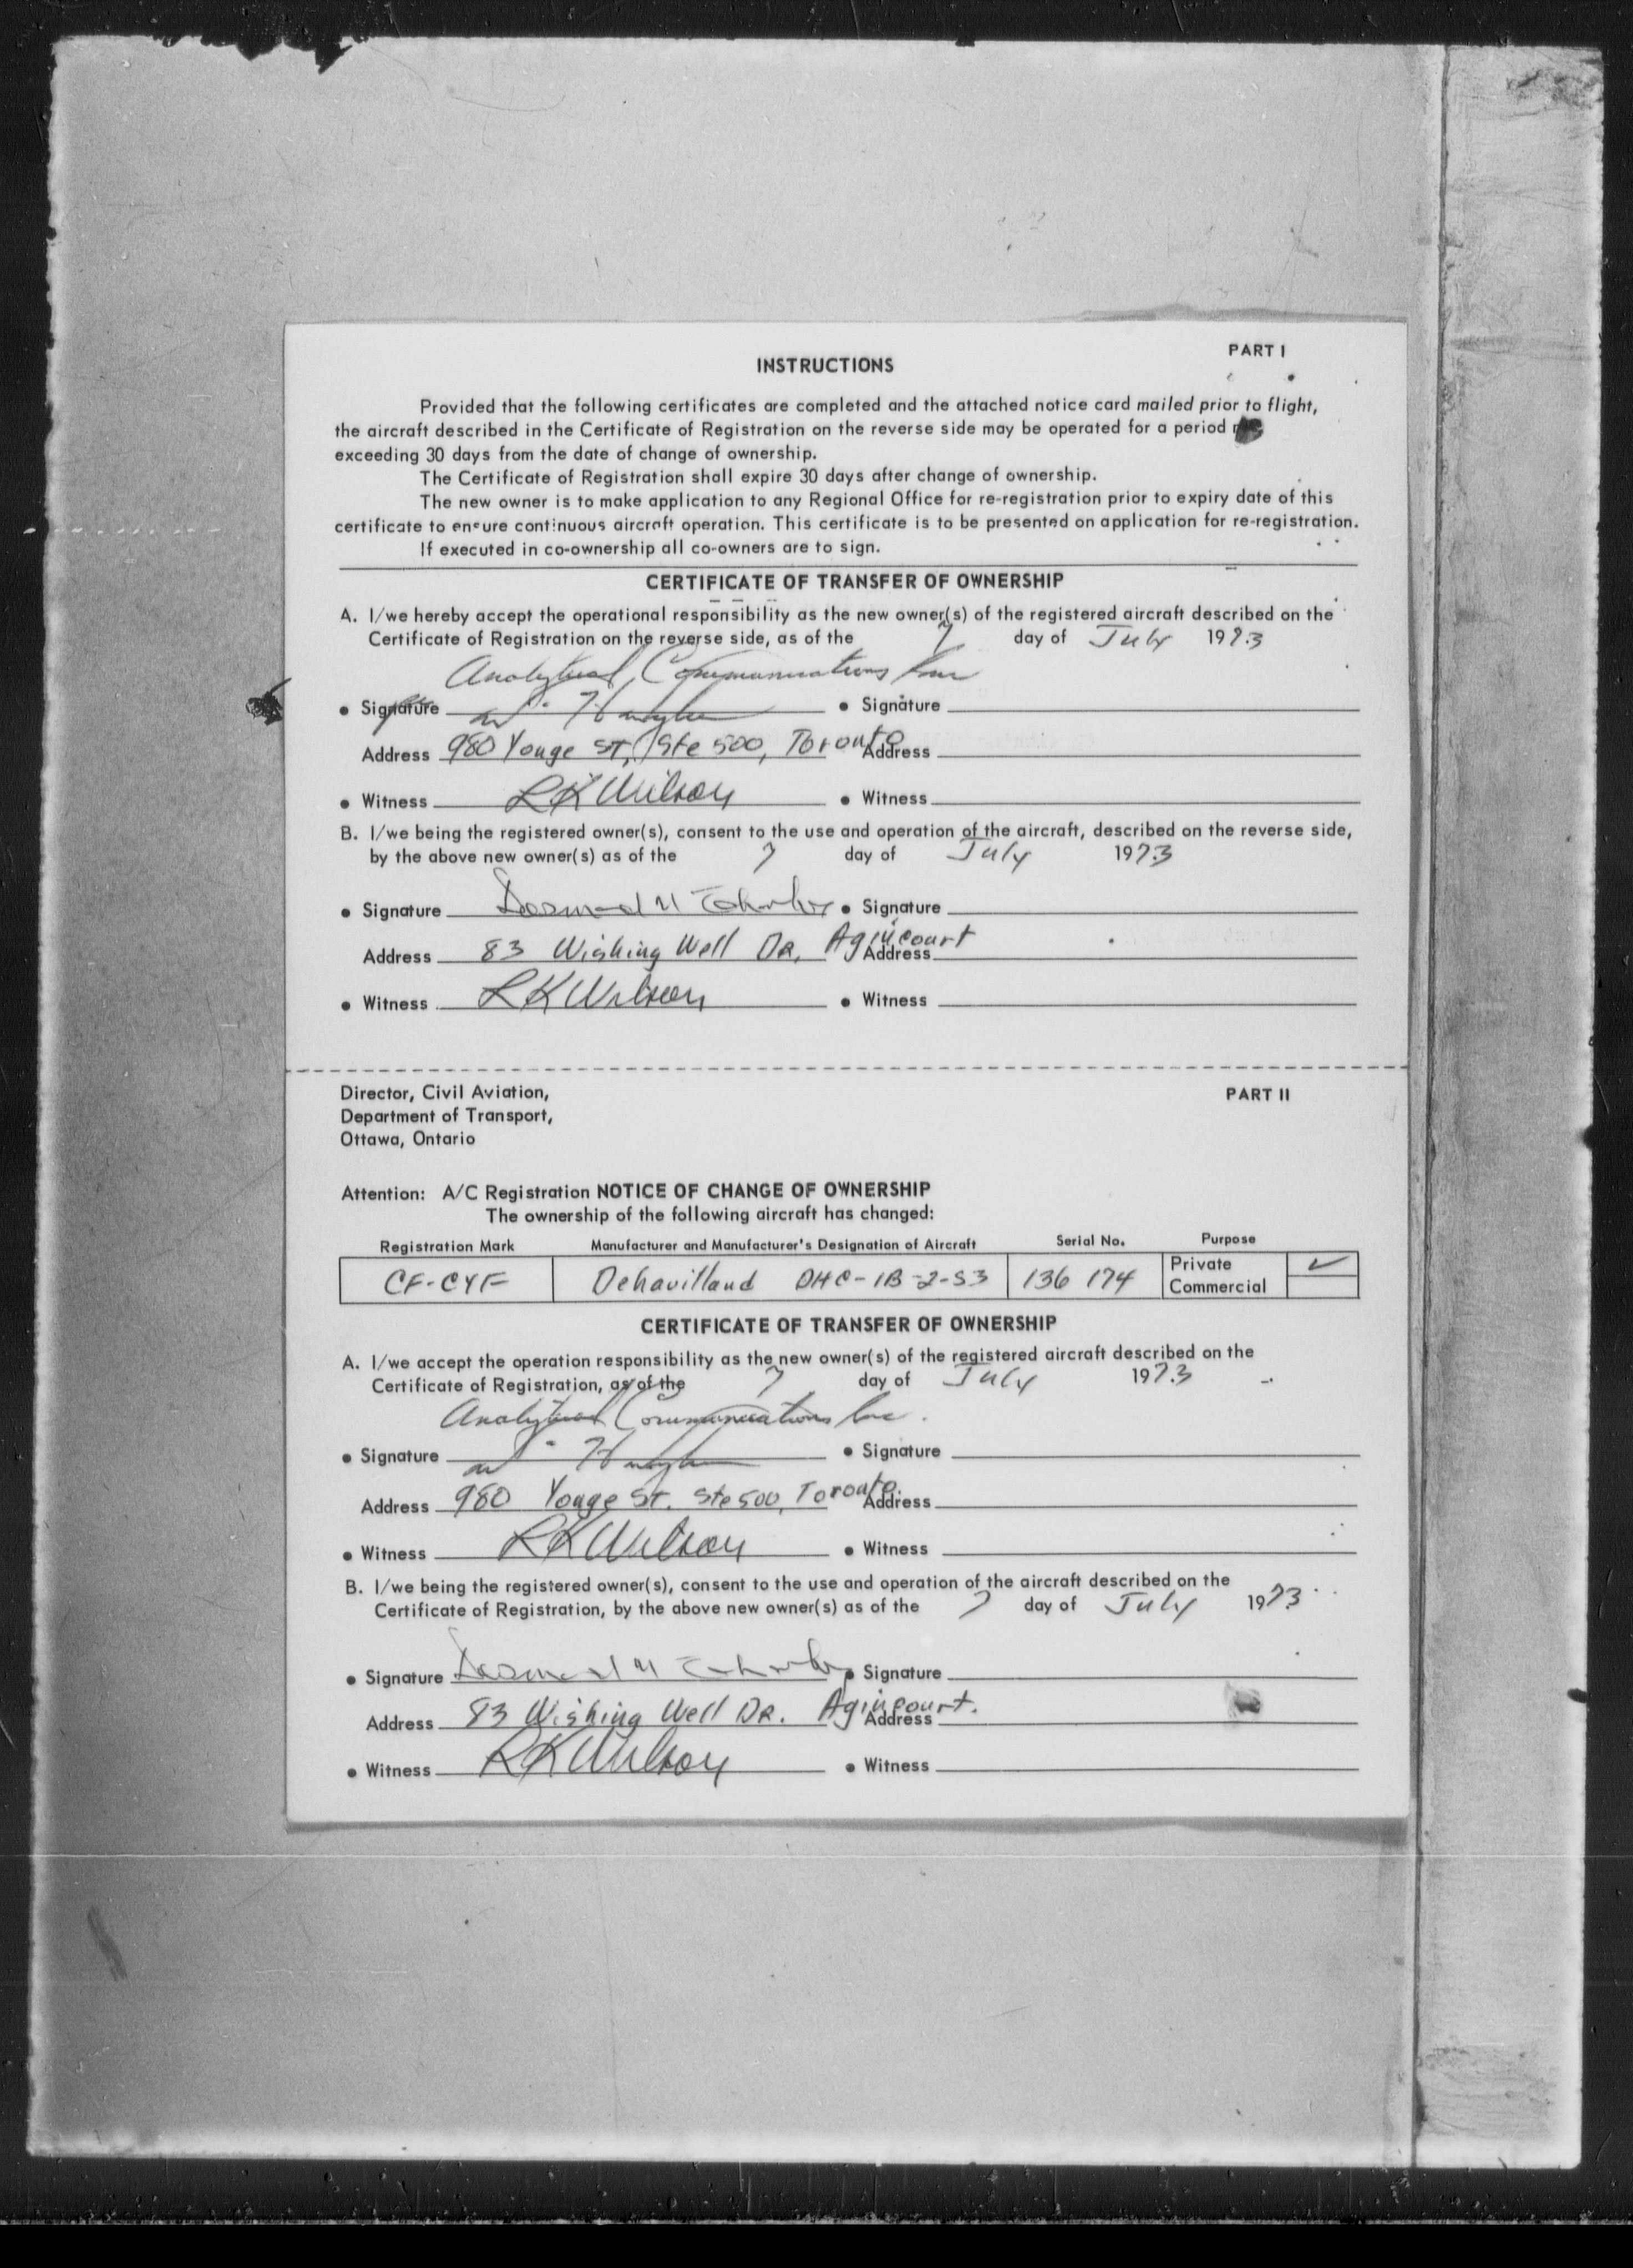 PART I
INSTRUCTIONS
Provided that the following certificates are completed and the attached notice card mailed prior to flight,
the aircraft described in the Certificate of Registration on the reverse side may be operated for a period
exceeding 30 days from the date of change of ownership.
The Certificate of Registration shall expire 30 days after change of ownership.
The new owner is to make application to any Regional Office for re-registration prior to expiry date of this
certificate to ensure continuous aircraft operation. This certificate is to be presented on application for re-registration.
If executed in co-ownership all co-owners are to sign.
CERTIFICATE OF TRANSFER OF OWNERSHIP
A. I/we hereby accept the operational responsibility as the new owner(s) of the registered aircraft described on the
Certificate of Registration on the reverse side, as of the 7 day of July 1973
Analytical Communications Inc
• Signature • Signature
Address 980 Yonge ST, Ste 500, Toronto Address
• Witness RK Wilson • Witness
B. I/we being the registered owner(s), consent to the use and operation of the aircraft, described on the reverse side,
by the above new owner(s) as of the 7 day of July 1973
• Signature Desmond • Signature
Address 83 Wishing Well DR. Agincourt Address
• Witness RK Wilson • Witness
Director, Civil Aviation, PART II
Department of Transport,
Ottawa, Ontario
Attention: A/C Registration NOTICE OF CHANGE OF OWNERSHIP
The ownership of the following aircraft has changed:
Registration Mark Manufacturer and Manufacturer's Designation of Aircraft Serial No. Purpose
CF-CYF Dehavilland DHC-1B-2-S3 136 174 Private ✓
Commercial
CERTIFICATE OF TRANSFER OF OWNERSHIP
A. I/we accept the operation responsibility as the new owner(s) of the registered aircraft described on the
Certificate of Registration, as of the 7 day of July 1973
Analytical Communications Inc.
• Signature • Signature
Address 980 Yonge ST. Ste 500, Toronto. Address
• Witness RK Wilson • Witness
B. I/we being the registered owner(s), consent to the use and operation of the aircraft described on the
Certificate of Registration, by the above new owner(s) as of the 7 day of July 1973
• Signature Desmond • Signature
Address 83 Wishing Well DR. Agincourt. Address
• Witness RK Wilson • Witness